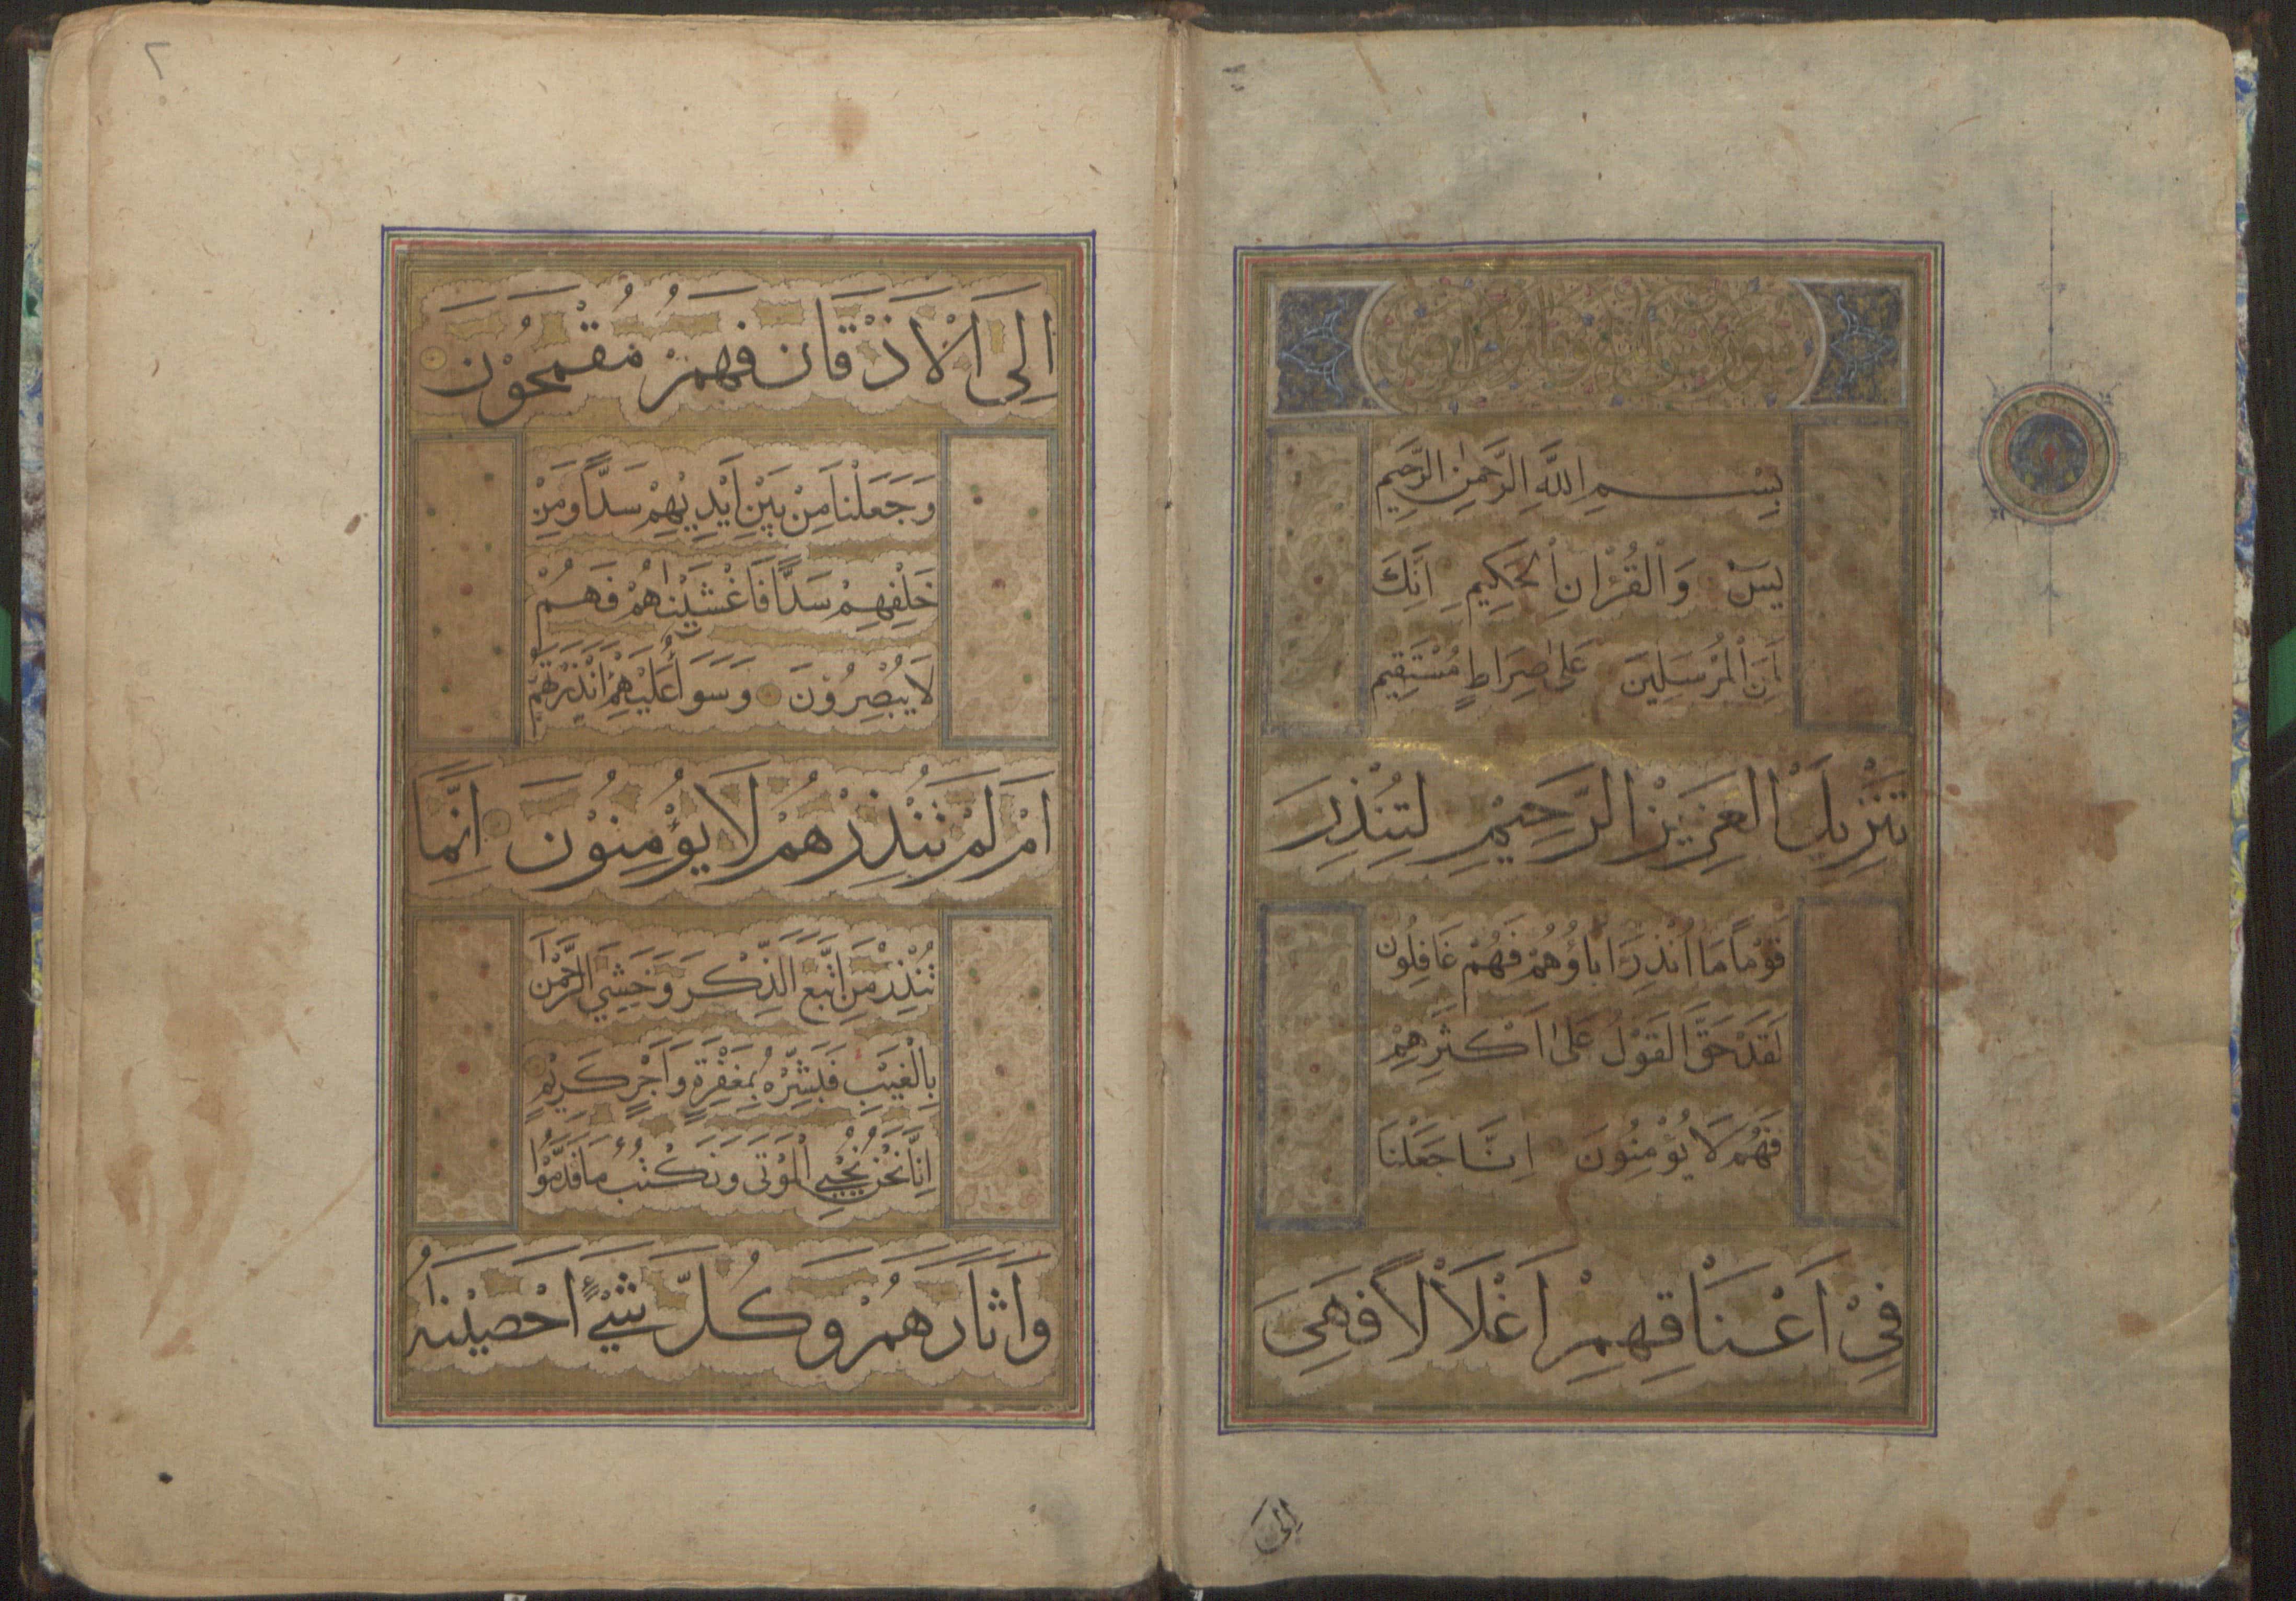 بِسْمِ اللَّهِ الرَّحْمٰنِ الرَّحِيمِ
يٰسٓ وَالْقُرْاٰنِ الْحَكِيمِ اِنَّكَ
لَمِنَ الْمُرْسَلِينَ عَلٰى صِرَاطٍ مُسْتَقِيمٍ
تَنْزِيلَ الْعَزِيْزِ الرَّحِيْمِ لِتُنْذِرَ
قَوْمًا مَا اُنْذِرَ اٰبَاؤُهُمْ فَهُمْ غَافِلُونَ
لَقَدْ حَقَّ الْقَوْلُ عَلٰى اَكْثَرِهِمْ
فَهُمْ لَا يُؤْمِنُونَ اِنَّا جَعَلْنَا
فِيْ اَعْنَاقِهِمْ اَغْلَالًا فَهِيَ
اِلَى
٢
اِلَى الْاَذْقَانِ فَهُمْ مُقْمَحُوْنَ
وَجَعَلْنَا مِنْ بَيْنِ اَيْدِيْهِمْ سَدًّا وَمِنْ
خَلْفِهِمْ سَدًّا فَاَغْشَيْنٰاهُمْ فَهُمْ
لَا يُبْصِرُوْنَ وَسَوَاءٌ عَلَيْهِمْ ءَاَنْذَرْتَهُمْ
اَمْ لَمْ تُنْذِرْهُمْ لَا يُؤْمِنُوْنَ اِنَّمَا
تُنْذِرُ مَنِ اتَّبَعَ الذِّكْرَ وَخَشِيَ الرَّحْمٰنَ
بِالْغَيْبِ فَبَشِّرْهُ بِمَغْفِرَةٍ وَاَجْرٍ كَرِيْمٍ
اِنَّا نَحْنُ نُحْيِي الْمَوْتٰى وَنَكْتُبُ مَا قَدَّمُوْا
وَاٰثَارَهُمْ وَكُلَّ شَيْءٍ اَحْصَيْنٰهُ